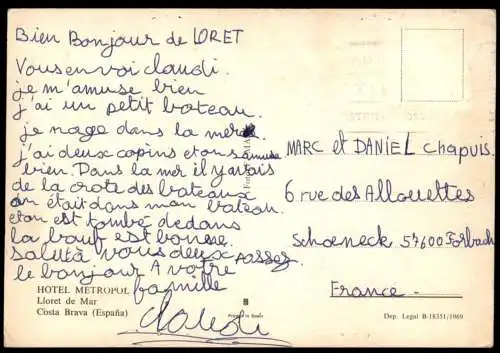 Bien Bonjour de LORET
Vous en voi claudi.
je m'amuse bien
j'ai un petit bateau.
je nage dans la mer
j'ai deux copins et ons amuse
bien. Dans la mer il y avais
de la crote des bateaux
on était dans mon bateau.
et on est tombé dedans
la bouf est bonne
saluta vous deux passez
le bonjour A votre
famille
Claudi
MARC et DANIEL Chapuis
6 rue des Allouettes
Schœneck 57600 Forbach
France
HOTEL METROPOL
Lloret de Mar
Costa Brava (España)
Dep. Legal B-18351/1969